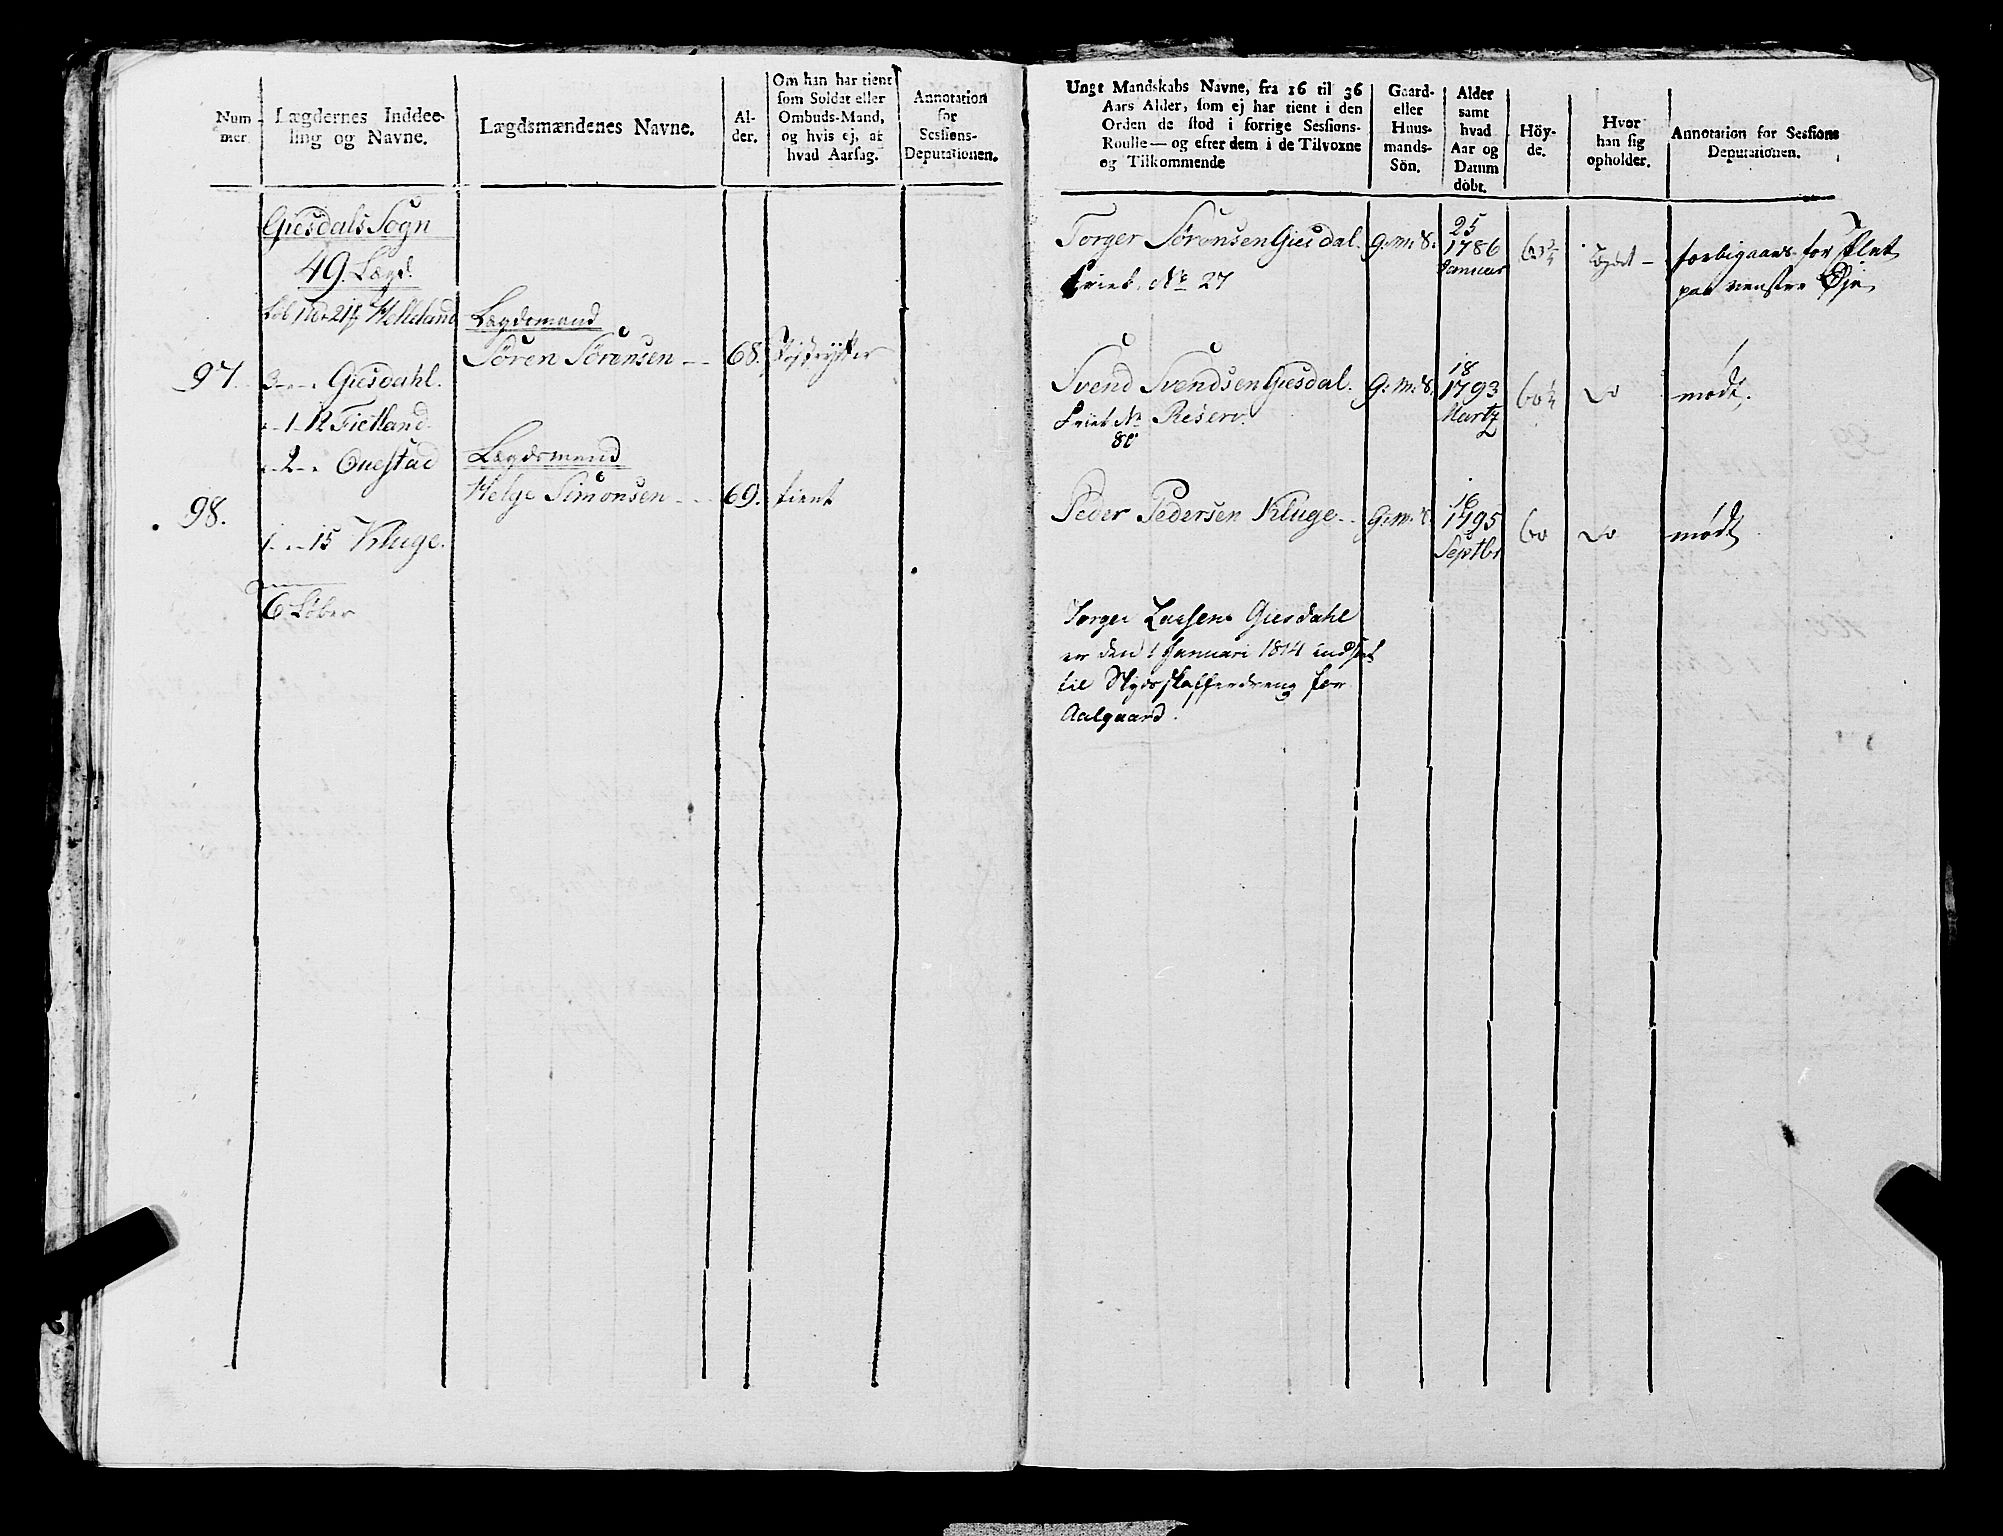 Num-
mer
Lægdernes Inddee-
ling og Navne.
Lægdsmændenes Navne.
Al-
der.
Om han har tient
som Soldat eller
Ombuds-Mand,
og hvis ej, af
hvad Aarsag.
Annotation
for
Sessions-
Deputationen.
Giesdals Sogn
49. Lægd.
Helleland
Lægdsmand
97.
Søren Sørensen
68.
3 Giesdahl.
1 12 Fietland
2 Ouestad
Lægdsmand
98.
Helge Simonsen
69.
tient
1 15 Kluge.
6 Løber
Ungt Mandskabs Navne, fra 16 til 36
Aars Alder, som ej har tient i den
Orden de stod i forrige Sessions-
Roulle — og efter dem i de Tilvoxne
og Tilkommende
Gaard-
eller
Huus-
mands-
Søn.
Alder
samt
hvad
Aar og
Datum
døbt.
Höy-
de.
Hvor
han sig
opholder.
Annotation for Sessions
Deputationen.
Torger Sørensen Giesdal. G. M. S. 25 1786 Januar
forbigaaes for Plet
paa venstre Øje
No 27
Svend Svendsen Giesdal. G. M. S. 18 1793 Martz 60 1/4 Do mødt.
No Reserv.
80
Peder Pedersen Kluge G. M. S. 16 1795 Septbr 60 Do mødt
Torger Lassen Giesdahl
er den 1 Januari 1814 indsat
til Skydsskafferdreng for
Aalgaard.